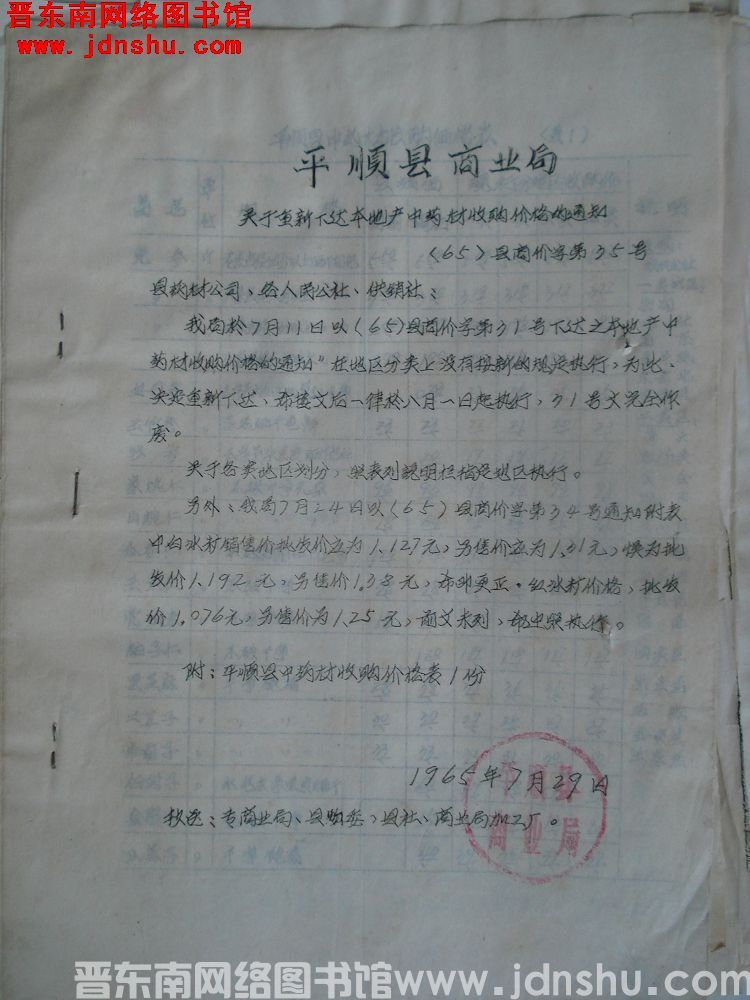 晋东南网络图书馆
www.jdnshu.com
平顺县商业局
关于重新下达本地产中药材收购价格的通知
(65)县商价字第35号
县药材公司、各人民公社、供销社、
我局於7月11日以(65)县商价字第31号下达之本地产中
药材收购价格的通知"在地区分类上没有按新的规定执行,为此、
决定重新下达、希接文后一律於八月一日起执行,31号文完全作
废。
关于各类地区划分,照表列説明栏指定地区执行。
另外:我局7月24日以(65)县商价字第34号通知附表
中白冰糖销售价批发价应为1.127元,另售价应为1.31元,悮为批
发价1.192元,另售价1.38元,希即更正·红冰糖价格,批发
价1.076元,另售价为1.25元,前文未列,希也照执行。
附:平顺县中药材收购价格表1份
1965年7月29日
抄送:专商业局、县物委,县社、商业局加工厂。
平顺县
商业局
晋东南网络图书馆www.jdnshu.com